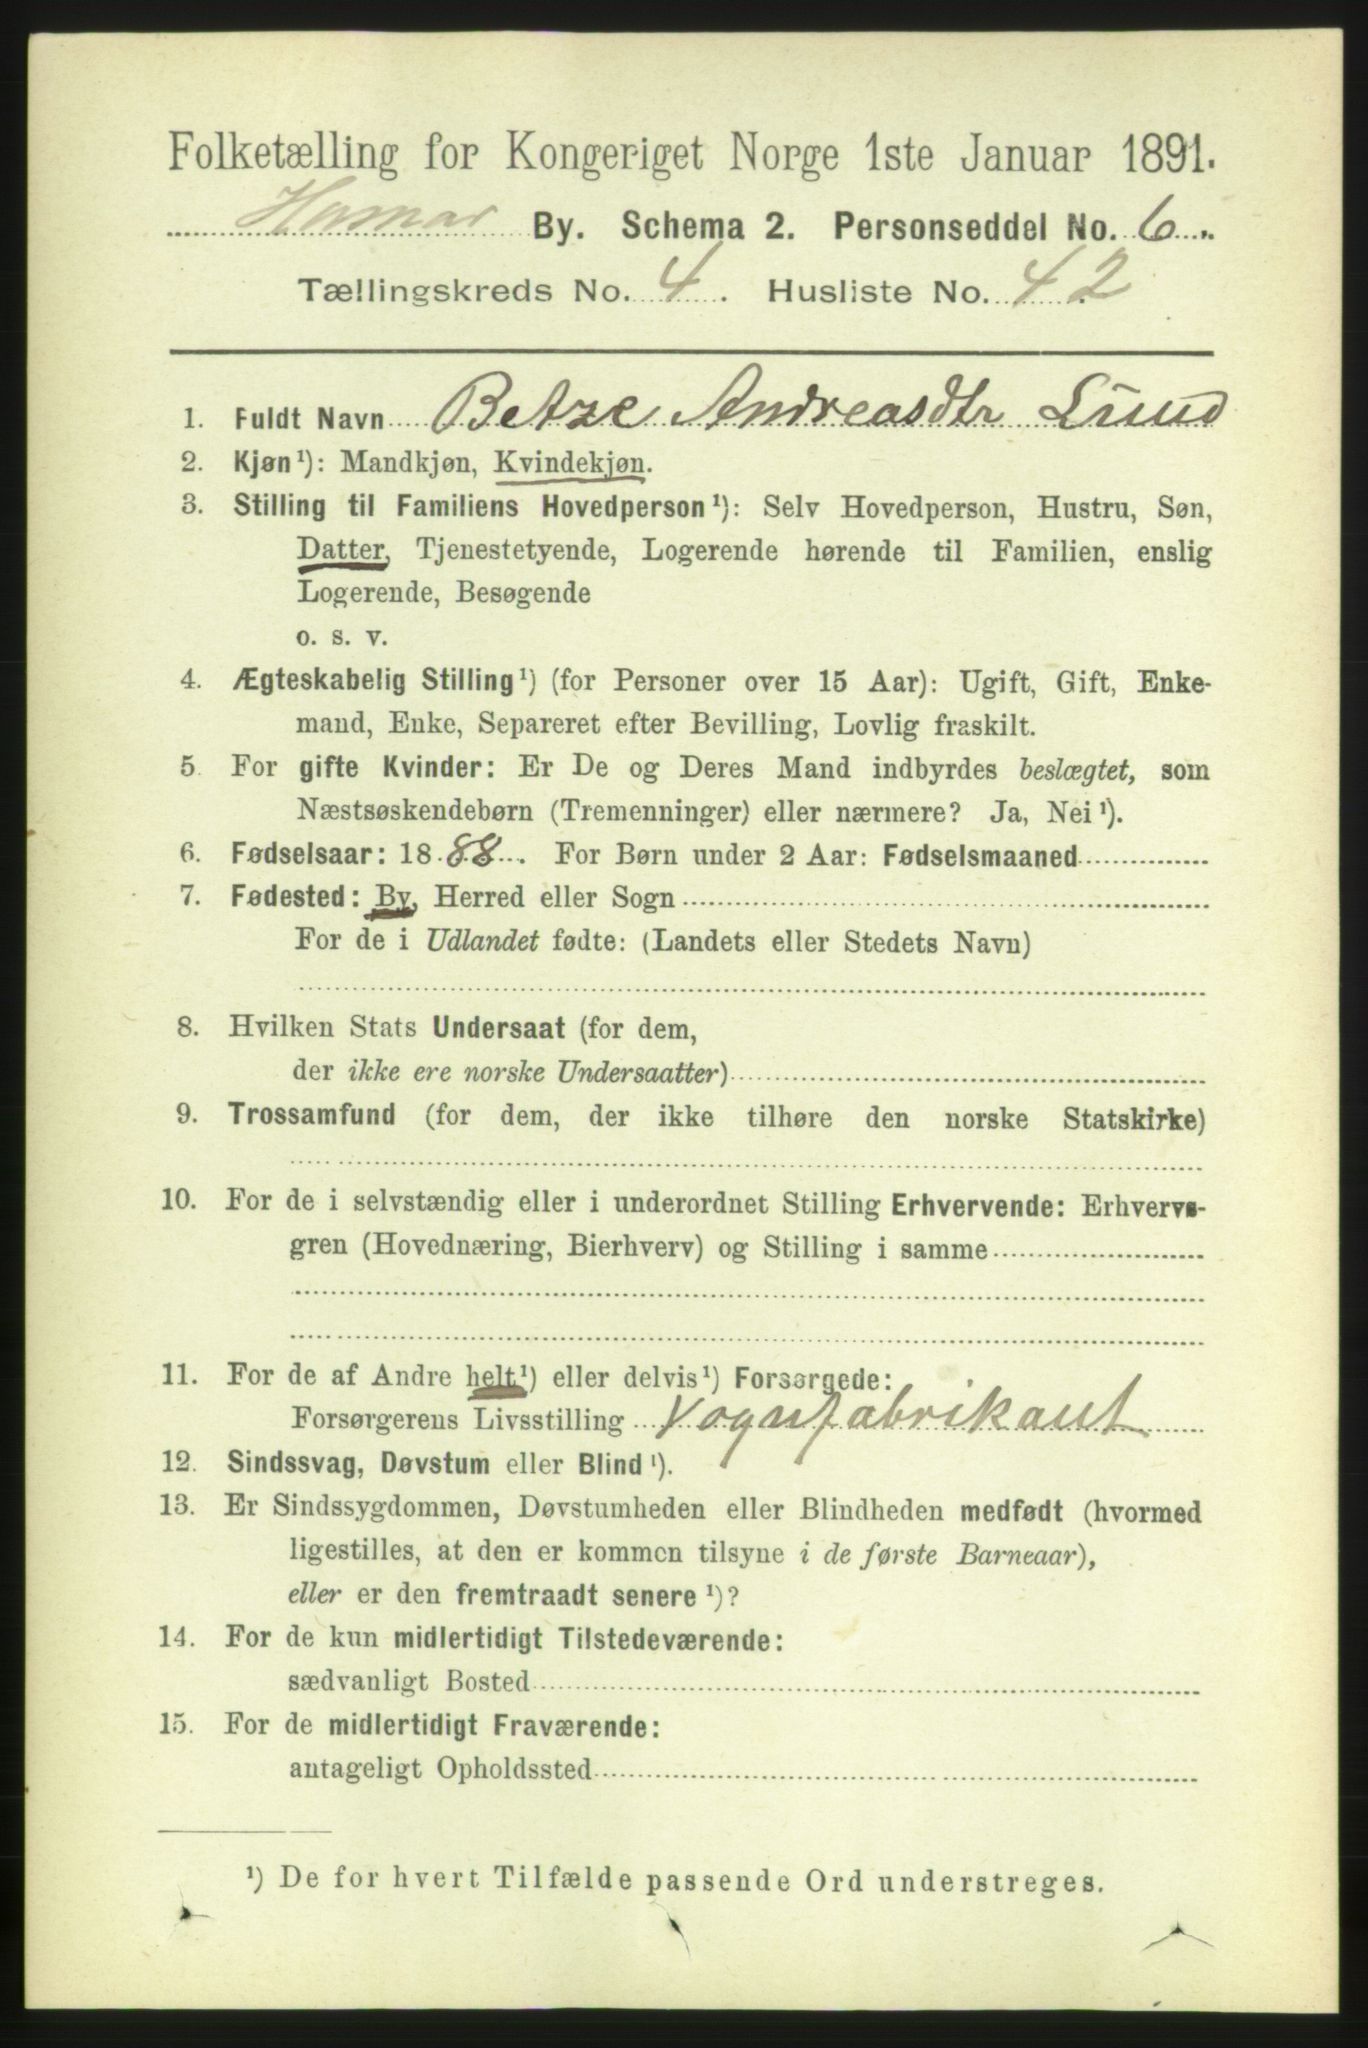 Folketælling for Kongeriget Norge 1ste Januar 1891.
Hamar By. Schema 2. Personseddel No. 6.
Tællingskreds No. 4. Husliste No. 42
1. Fuldt Navn Betze Andreasdtr Lund
2. Kjøn¹): Mandkjøn, Kvindekjøn.
3. Stilling til Familiens Hovedperson¹): Selv Hovedperson, Hustru, Søn,
Datter, Tjenestetyende, Logerende hørende til Familien, enslig
Logerende, Besøgende
o. s. v.
4. Ægteskabelig Stilling¹) (for Personer over 15 Aar): Ugift, Gift, Enke-
mand, Enke, Separeret efter Bevilling, Lovlig fraskilt.
5. For gifte Kvinder: Er De og Deres Mand indbyrdes beslægtet, som
Næstsøskendebørn (Tremenninger) eller nærmere? Ja, Nei¹).
6. Fødselsaar: 1888. For Børn under 2 Aar: Fødselsmaaned
7. Fødested: By, Herred eller Sogn
For de i Udlandet fødte: (Landets eller Stedets Navn)
8. Hvilken Stats Undersaat (for dem,
der ikke ere norske Undersaatter)
9. Trossamfund (for dem, der ikke tilhøre den norske Statskirke)
10. For de i selvstændig eller i underordnet Stilling Erhvervende: Erhvervs-
gren (Hovednæring, Bierhverv) og Stilling i samme
11. For de af Andre helt¹) eller delvis¹) Forsørgede:
Forsørgerens Livsstilling Vognfabrikant
12. Sindssvag, Døvstum eller Blind¹).
13. Er Sindssygdommen, Døvstumheden eller Blindheden medfødt (hvormed
ligestilles, at den er kommen tilsyne i de første Barneaar),
eller er den fremtraadt senere¹)?
14. For de kun midlertidigt Tilstedeværende:
sædvanligt Bosted
15. For de midlertidigt Fraværende:
antageligt Opholdssted
¹) De for hvert Tilfælde passende Ord understreges.